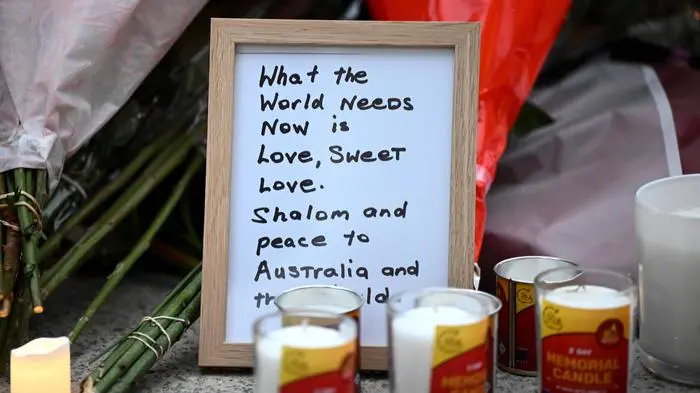 What the
World NEEDS
Now is
Love, SWEET
Love.
Shalom and
peace to
Australia and
MEMORIAL
CANDLE
MEMORIAL
CANDLE